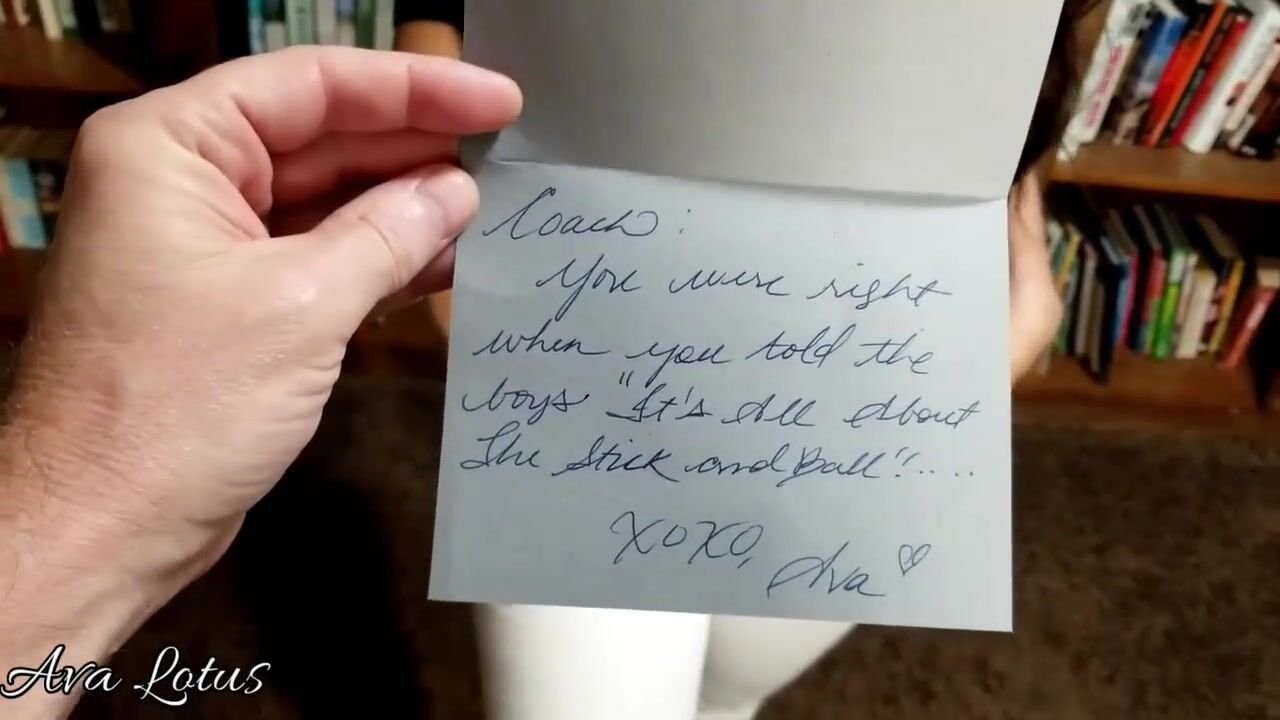 Coach:
You were right
when you told the
boys "It's All About
The Stick and Ball"!....
XOXO,
Ava
Ava Lotus